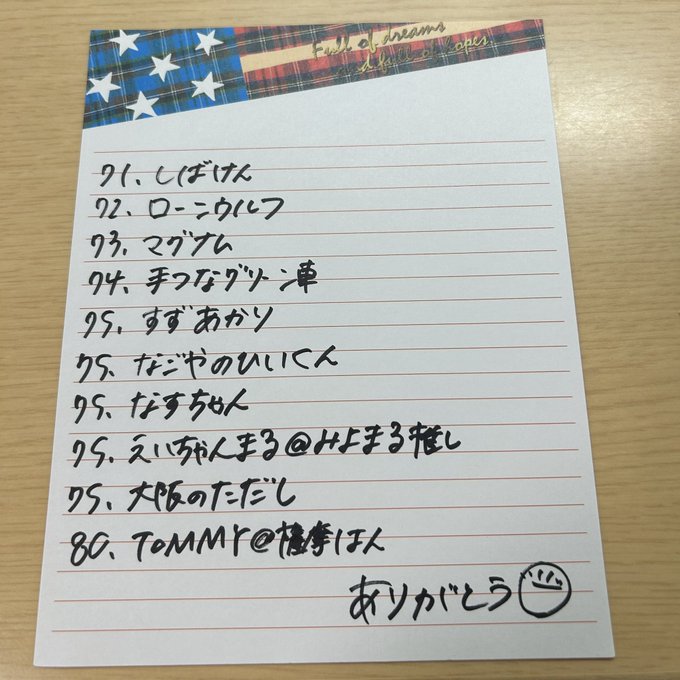 Full of dreams
and full of hopes
71、しばけん
72、ローンウルフ
73、マグナム
74、手つなグリーン車
75、すずあかり
75、なごやのひいくん
75、なすちゃん
75、えいちゃんまる@みよまる推し
75、大阪のただし
80、TOMMY@薩摩はん
ありがとう